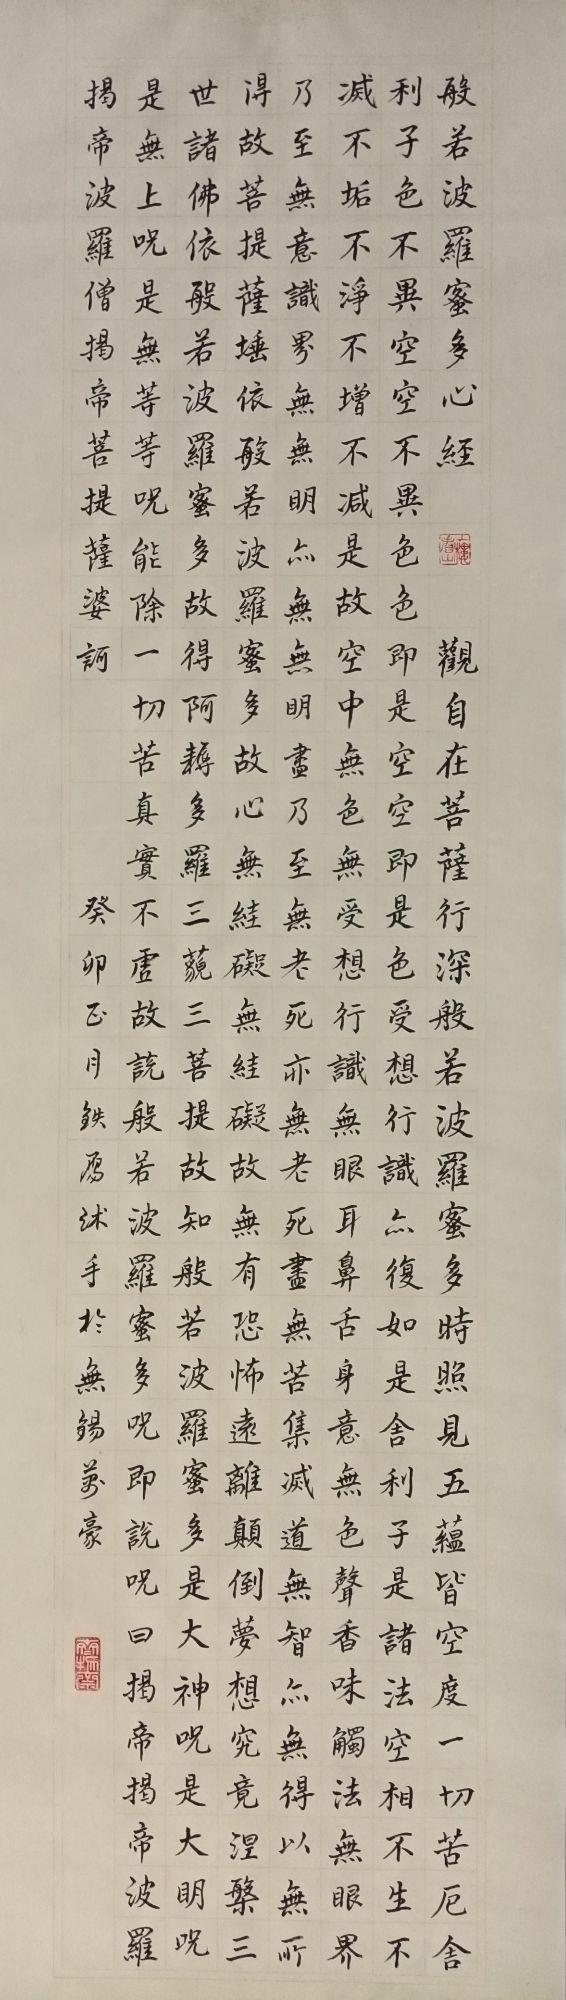 般若波羅蜜多心經 觀自在菩薩行深般若波羅蜜多時照見五蘊皆空度一切苦厄舍
利子色不異空空不異色色即是空空即是色受想行識亦復如是舍利子是諸法空相不生不
滅不垢不淨不增不减是故空中無色無受想行識無眼耳鼻舌身意無色聲香味觸法無眼界
乃至無意識界無無明亦無無明盡乃至無老死亦無老死盡無苦集滅道無智亦無得以無所
得故菩提薩埵依般若波羅蜜多故心無絓礙無絓礙故無有恐怖遠離顛倒夢想究竟涅槃三
世諸佛依般若波羅蜜多故得阿耨多羅三藐三菩提故知般若波羅蜜多是大神咒是大明咒
是無上咒是無等等咒能除一切苦真實不虛故說般若波羅蜜多咒即說咒曰揭帝揭帝波羅
揭帝波羅僧揭帝菩提薩婆訶 癸卯正月鉄馮沐手於無錫蓊豪